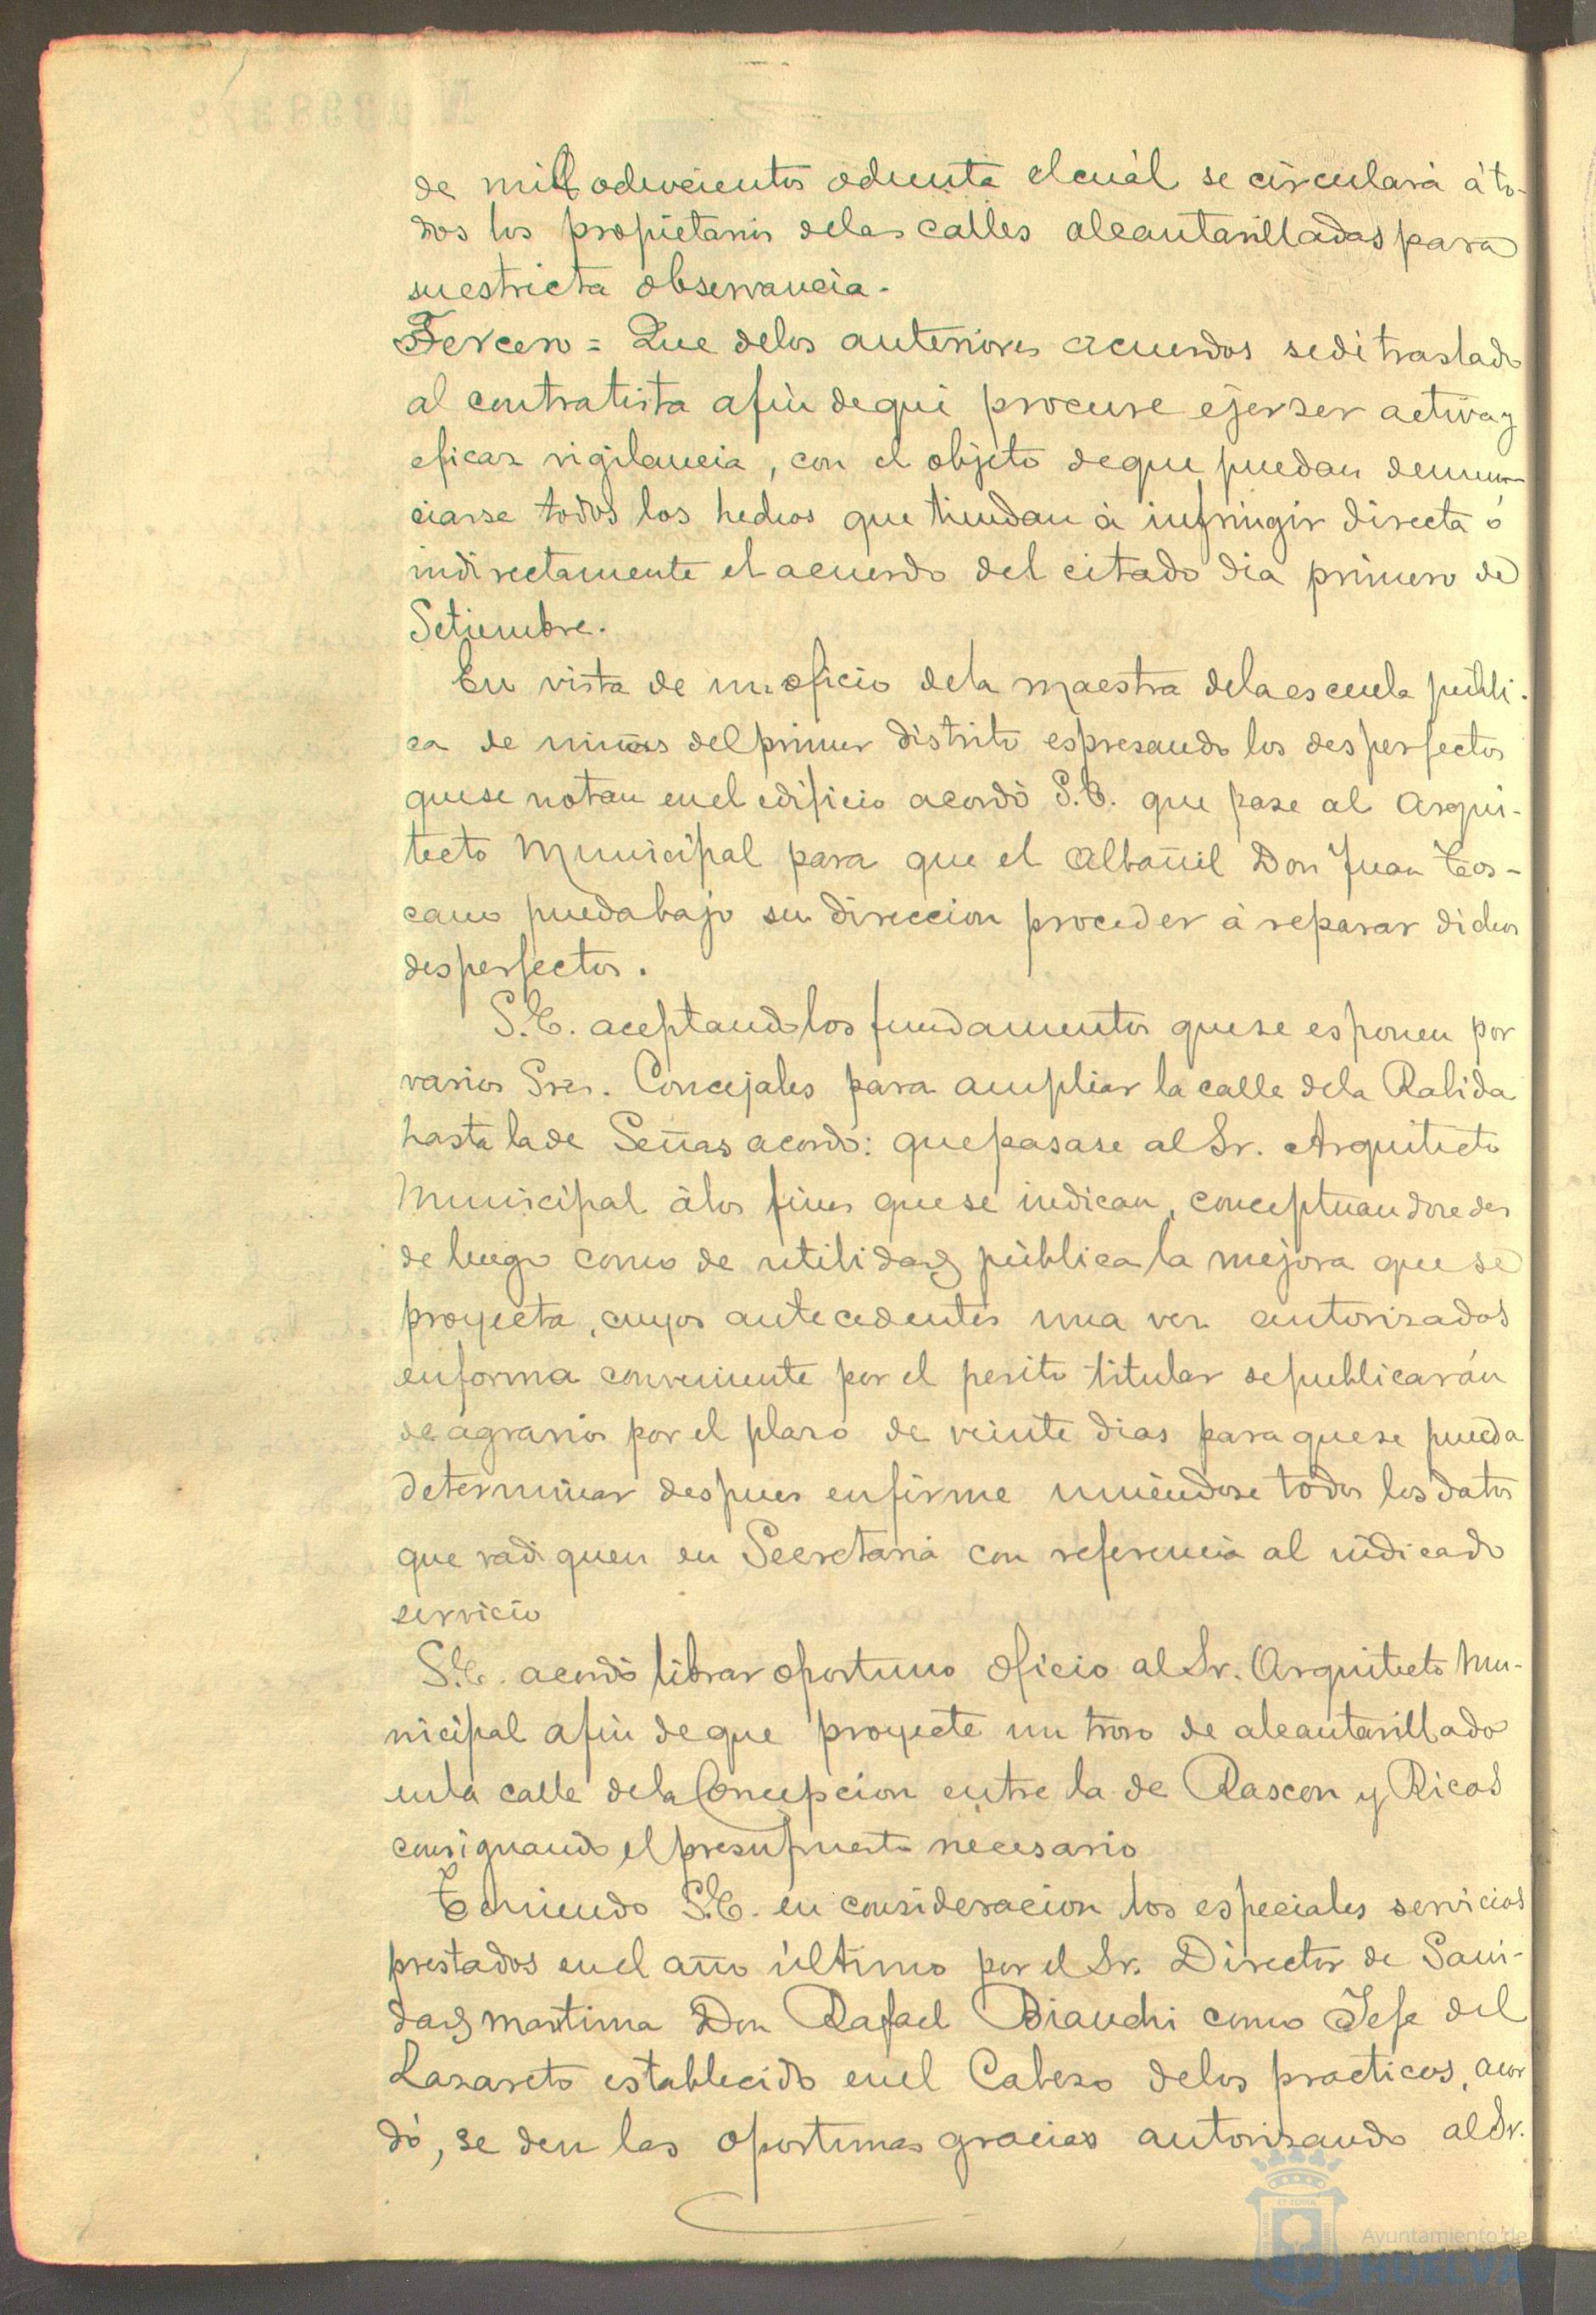 de mill ochocientos ochenta el cuál se circulará á to-
dos los propietarios de las calles alcantarilladas para
su estricta observancia.
Tercero = Que de los anteriores acuerdos se dé traslado
al contratista a fin de que procure ejerser activa y
eficaz vigilancia, con el objeto de que puedan denun-
ciarse todos los hechos que tiendan á infringir directa ó
indirectamente el acuerdo del citado dia primero de
Setiembre.
En vista de un oficio de la maestra de la escuela públi-
ca de niñas del primer distrito espresando los desperfectos
que se notan en el edificio acordó S.E. que pase al Arqui-
tecto Municipal para que el Albañil Don Juan Tos-
cano pueda bajo su direccion proceder á reparar dichos
desperfectos.
S.E. aceptando los fundamentos que se esponen por
varios Sres. Concejales para ampliar la calle de la Rabida
hasta la de Señas acordó: que pasase al Sr. Arquitecto
Municipal á los fines que se indican, conceptuandose des
de luego como de utilidad pública la mejora que se
proyecta, cuyos antecedentes una vez autorizados
en forma conveniente por el perito titular se publicarán
de agravios por el plazo de veinte dias para que se pueda
determinar despues en firme uniéndose todos los datos
que radiquen en Secretaria con referencia al indicado
servicio
S.E. acordó librar oportuno oficio al Sr. Arquitecto Mu-
nicipal a fin de que proyecte un trozo de alcantarillado
en la calle de la Concepcion entre la de Rascon y Ricos
consignando el presupuesto necesario
Teniendo S.E. en consideracion los especiales servicios
prestados en el año último por el Sr. Director de Sani-
dad maritima Don Rafael Bianchi como Jefe del
Lazareto establecido en el Cabezo de los practicos, acor
dó, se den las oportunas gracias autorizando al Sr.
Ayuntamiento de
HUELVA